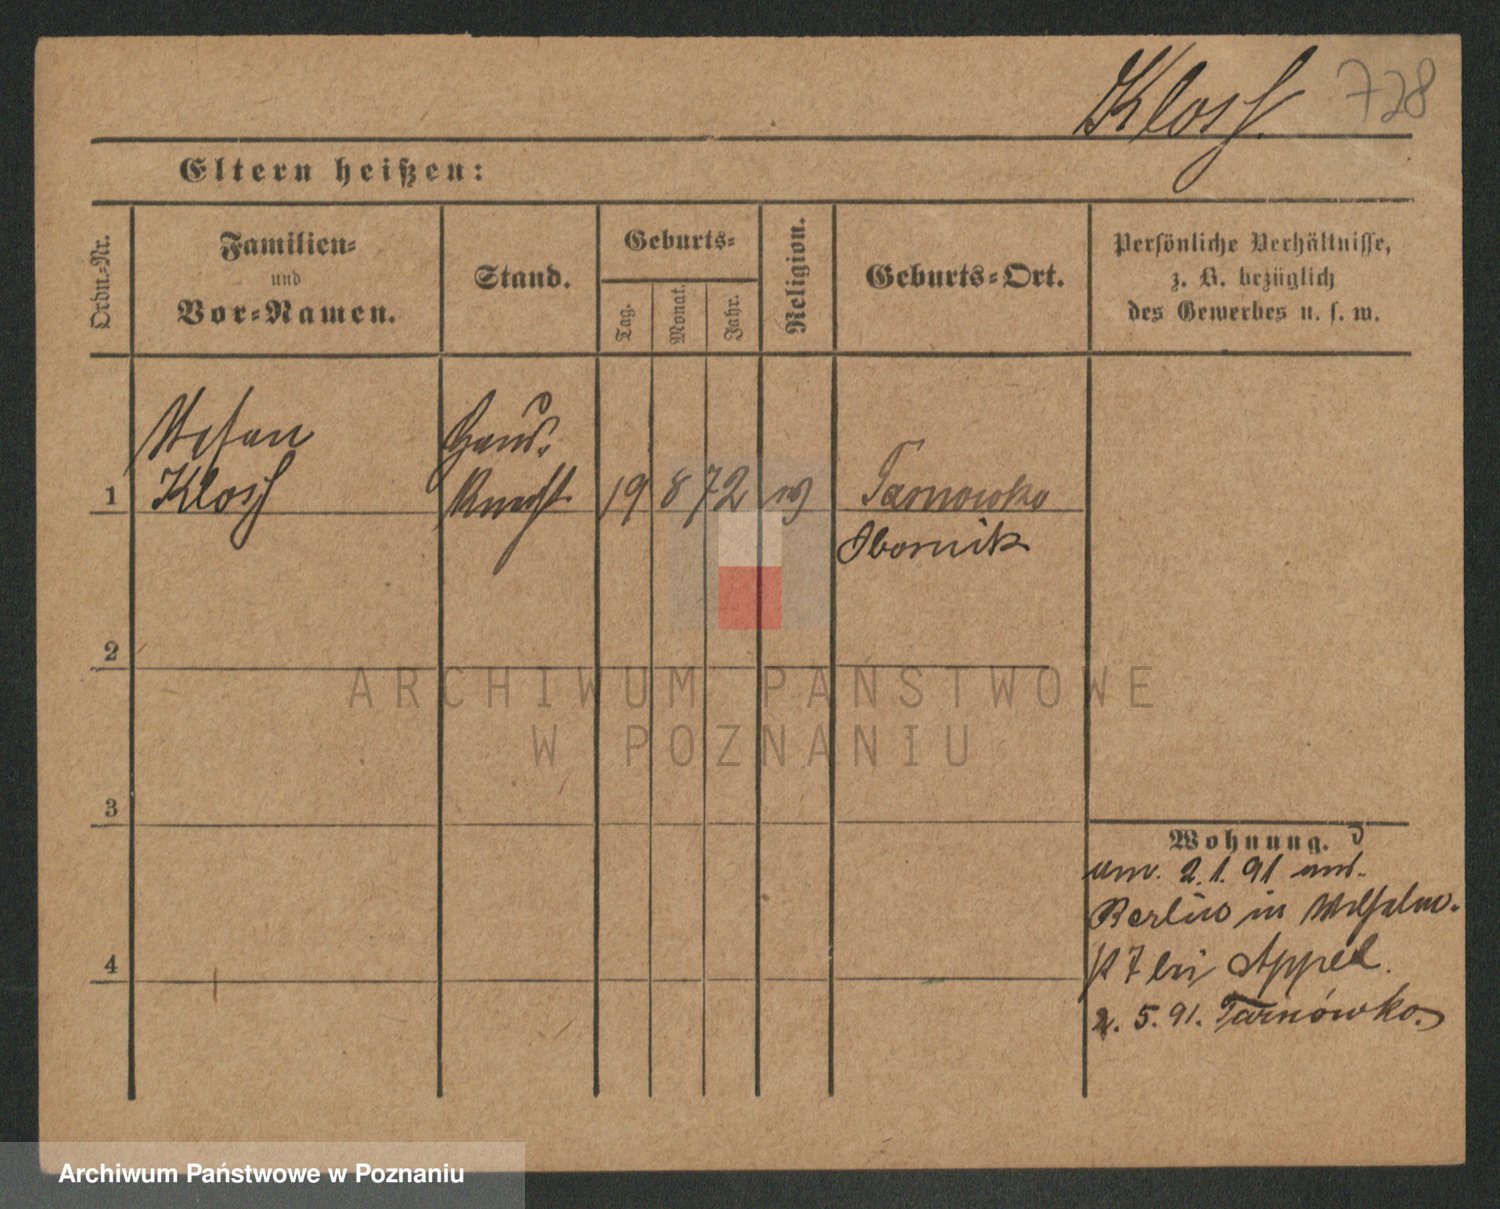 Klosch 728
Eltern heißen:
Ordn.-Nr.
Familien-
und
Vor-Namen.
Stand.
Geburts-
Tag.
Monat.
Jahr.
Religion.
Geburts-Ort.
Persönliche Verhältnisse,
z. B. bezüglich
des Gewerbes u. s. w.
Stefan
Klosch
Haus-
knecht
1 19 8 72 Tarnowko
Obornik
2
3
4
Wohnung.
am. 2.1.91 aus.
Berlin in Wilhelm-
st 7 bei Appel.
2. 5. 91. Tarnówko.
ARCHIWUM PAŃSTWOWE
W POZNANIU
Archiwum Państwowe w Poznaniu